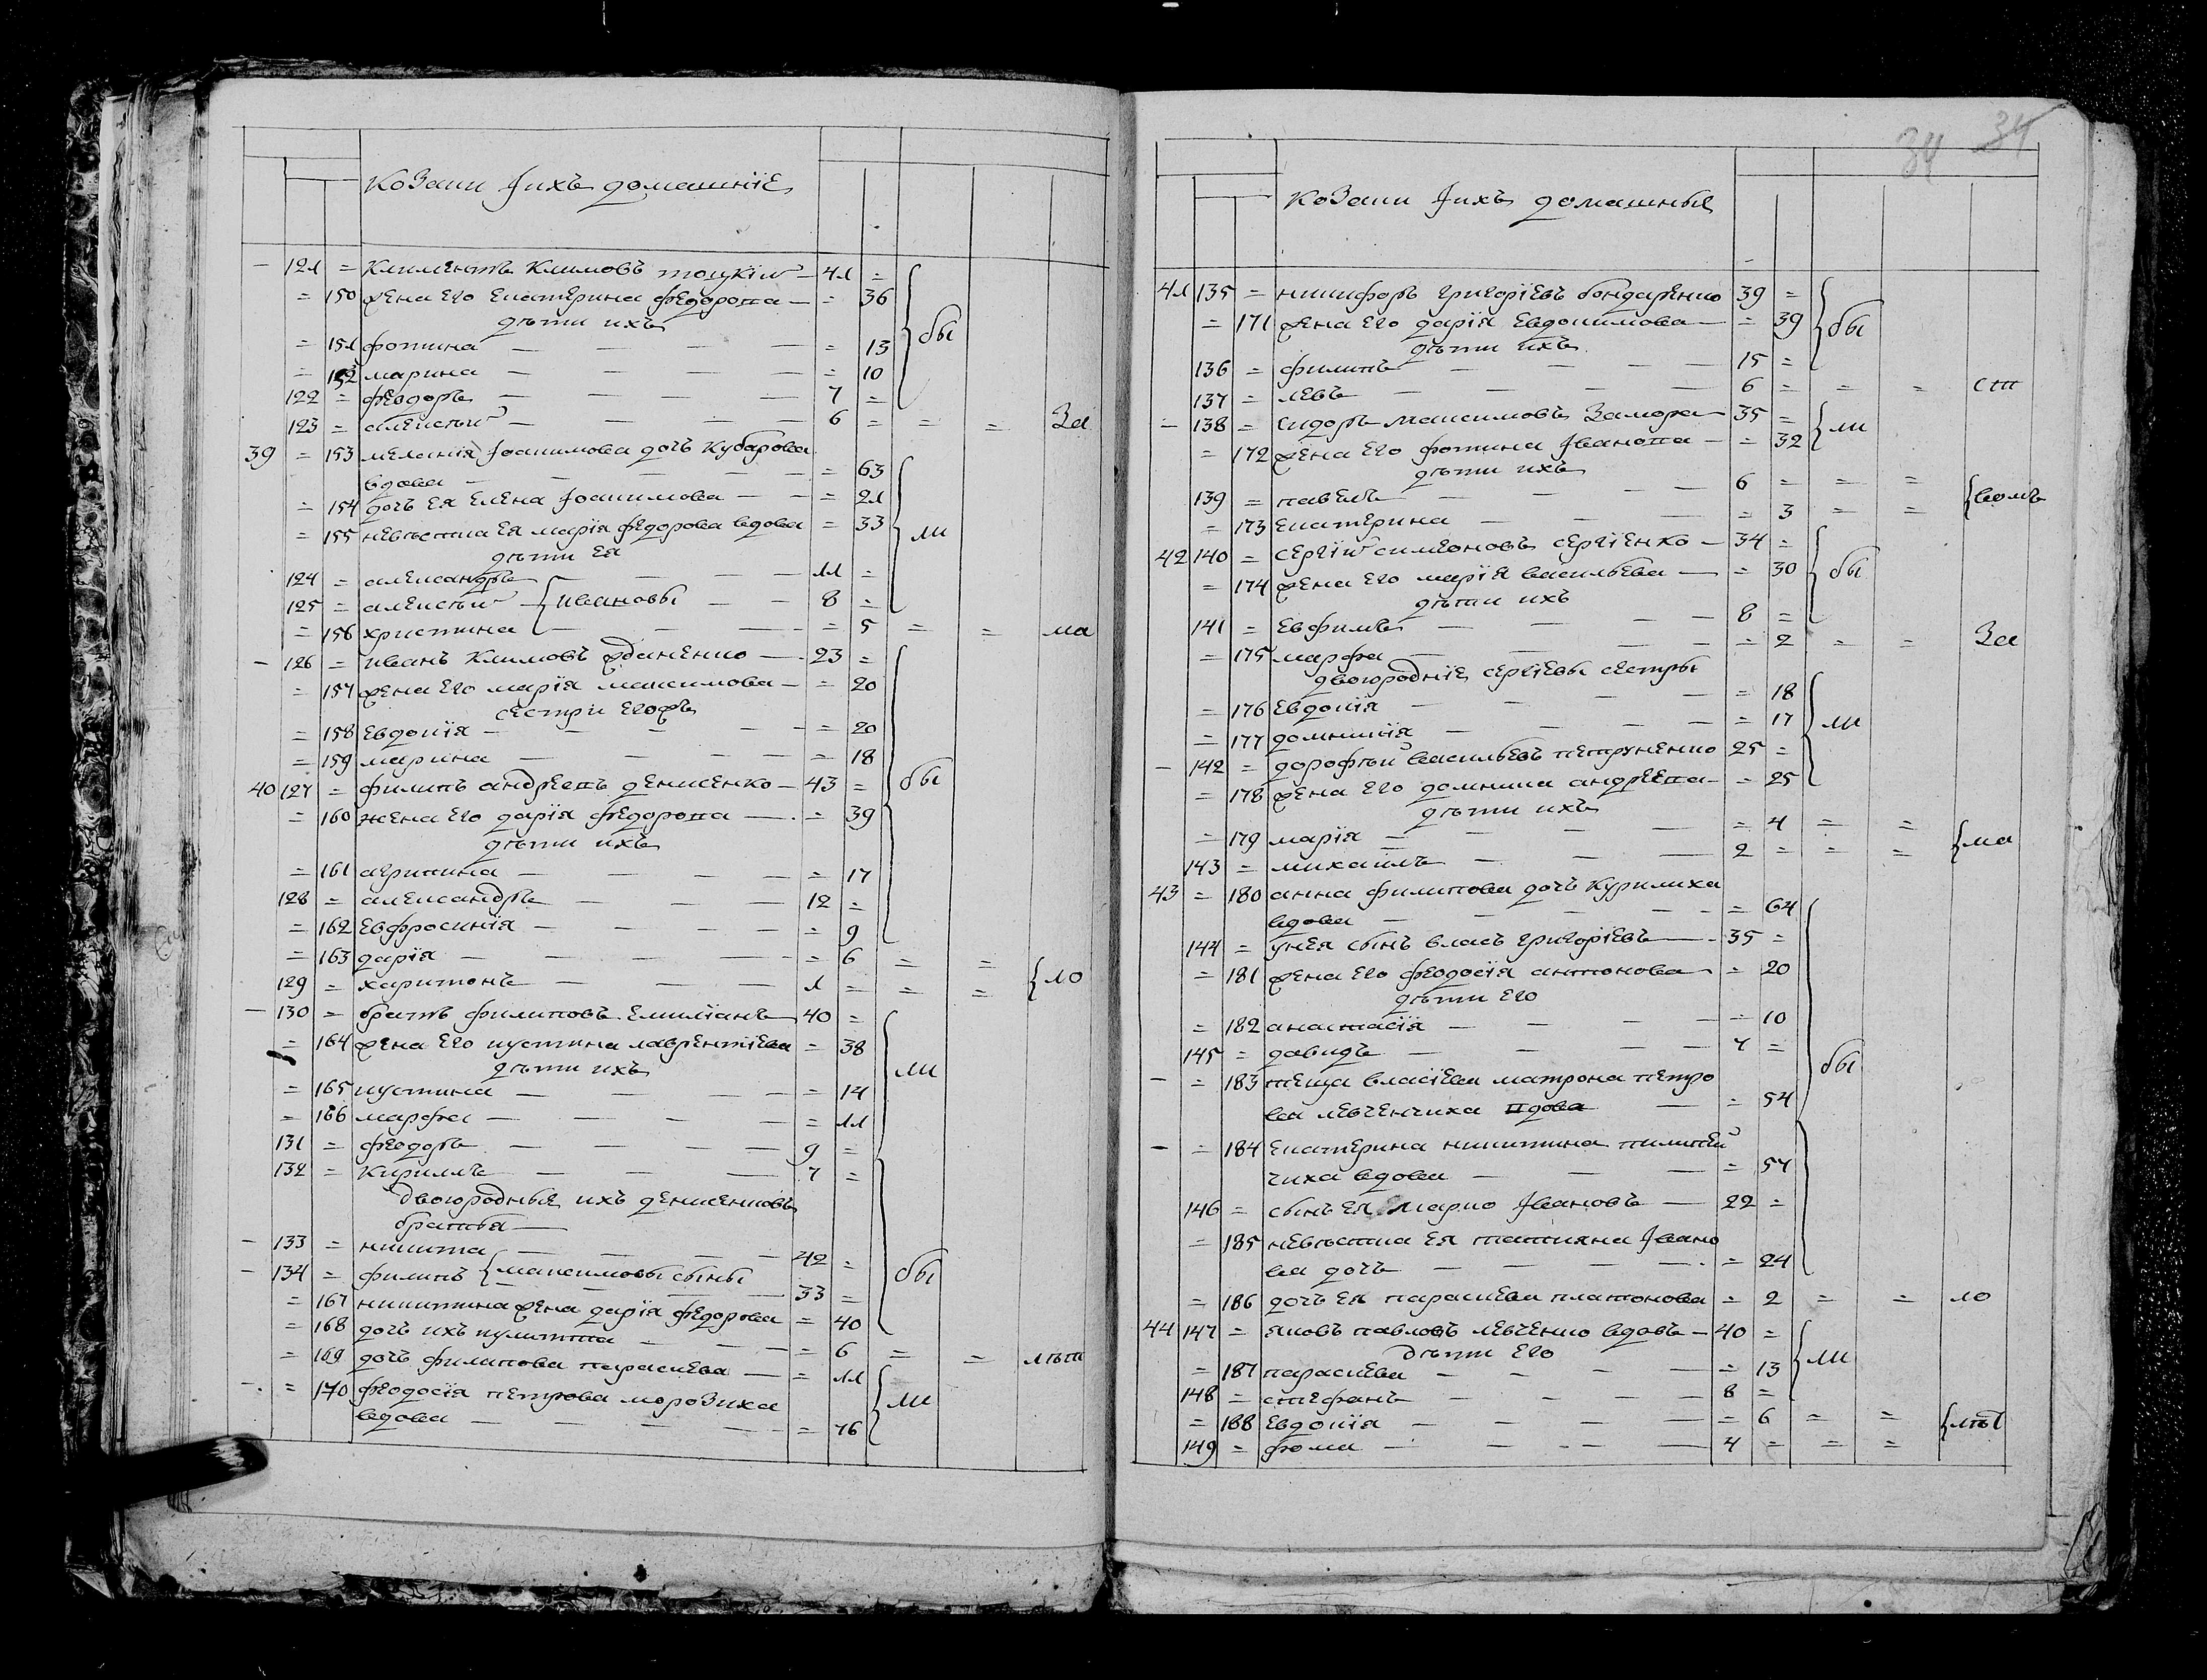 Козаки Ӏихъ домашнїе
— 121 = Климентъ Климовъ тоцкїй — 41 =
= 150 жена его екатерина федорова — = 36
дѣти ихъ
= 151 фотина — — — — = 13 бы
= 152 марина — — — — = 10
122 = феодоръ — — — — 7 =
123 = алексѣй — — — — 6 = = = За
39 = 153 меланїя Іоакимова дочь Кубарова
вдова — — — = 63
= 154 дочь ея елена Іоакимова — — = 21
= 155 невѣстка ея марїя федорова вдова = 33 ли
дѣти ея
124 = александръ — — — 11 =
125 = алексѣй — ивановы — — 8 =
= 156 христина — — — = 5 = = ма
— 126 = иванъ Климовъ жданенко — 23 =
= 157 жена его марїя максимова — = 20
сестри егожъ
= 158 евдокїя — — — — = 20
= 159 марина — — — — = 18
40 127 = филипъ андреевъ денисенко — 43 = бы
= 160 жена его дарїя федорова — = 39
дѣти ихъ
= 161 агрипина — — — — = 17
128 = александръ — — — 12 =
= 162 евфросинїя — — — — = 9
= 163 дарїя — — — — = 6 = =
129 = харитонъ — — — 1 = = = ло
— 130 = братъ филиповъ емилїанъ 40 =
= 164 жена его иустина лаврентїева = 38
дѣти ихъ ли
= 165 иустина — — — — = 14
= 166 марфа — — — — = 11
131 = феодоръ — — — — 9 =
132 = Кирилъ — — — — 7 =
двоюродные ихъ денисенковъ
братья —
— 133 = никита — — — — 42 =
— 134 = филипъ максимовы сыны — 33 = бы
= 167 никитина жена дарїя федорова = 40
= 168 дочь ихъ иулитта — — — = 6 = = лѣт
= 169 дочь филипова параскева — = 11
— = 170 феодосїя петрова морозиха ли
вдова — — — — = 76
34 34
Козаки Ӏихъ домашные
41 135 = никифоръ григорїевъ бондаренко 39 =
= 171 жена его дарїя евдокимова — = 39 бы
дѣти ихъ
136 = филипъ — — — — 15 =
137 = левъ — — — — 6 = = = ст
— 138 = сидоръ максимовъ Замора — 35 = ли
= 172 жена его фотина Іванова — = 32
дѣти ихъ
139 = павелъ — — — — 6 = = =
= 173 екатерина — — — = 3 = =
42 140 = сергїй симеоновъ сергїенко — 34 =
= 174 жена его марїя васильева — = 30 бы
дѣти ихъ
141 = ефимъ — — — — 8 =
= 175 марфа — — — — = 2 = = За
двоюроднїе сергїевы сестры
= 176 евдокїя — — — — = 18
= 177 домникїя — — — — = 17 ли
— 142 = дорофѣй васильевъ петруненко 25 =
= 178 жена его домника андреева — = 25
дѣти ихъ
= 179 марїя — — — — = 4 = =
143 = михаилъ — — — — 2 = = = ма
43 = 180 анна филипова дочь Курилиха
вдова — — — — = 64
144 = унея сынъ власъ григорїевъ — 35 =
= 181 жена его феодосїя антонова = 20
дѣти его
= 182 анастасїя — — — — = 10
145 = давидъ — — — — 7 =
— = 183 теща власїева матрона петро бы
ва левченчиха вдова — = 54
— = 184 екатерина никитина пилипей
чиха вдова — — — = 57
146 = сынъ ея Марко Івановъ — 22 =
= 185 невѣстка ея татияна Івано
ва дочь — — — — = 24
= 186 дочь ея параскева платонова = 2 = = ло
44 147 = яковъ павловъ левченко вдовъ — 40 =
Дѣти его ли
= 187 параскева — — — = 13
148 = стефанъ — — — 8 =
= 188 евдокїя — — — — = 6 = = лѣт
149 = фома — — — — 4 = = =